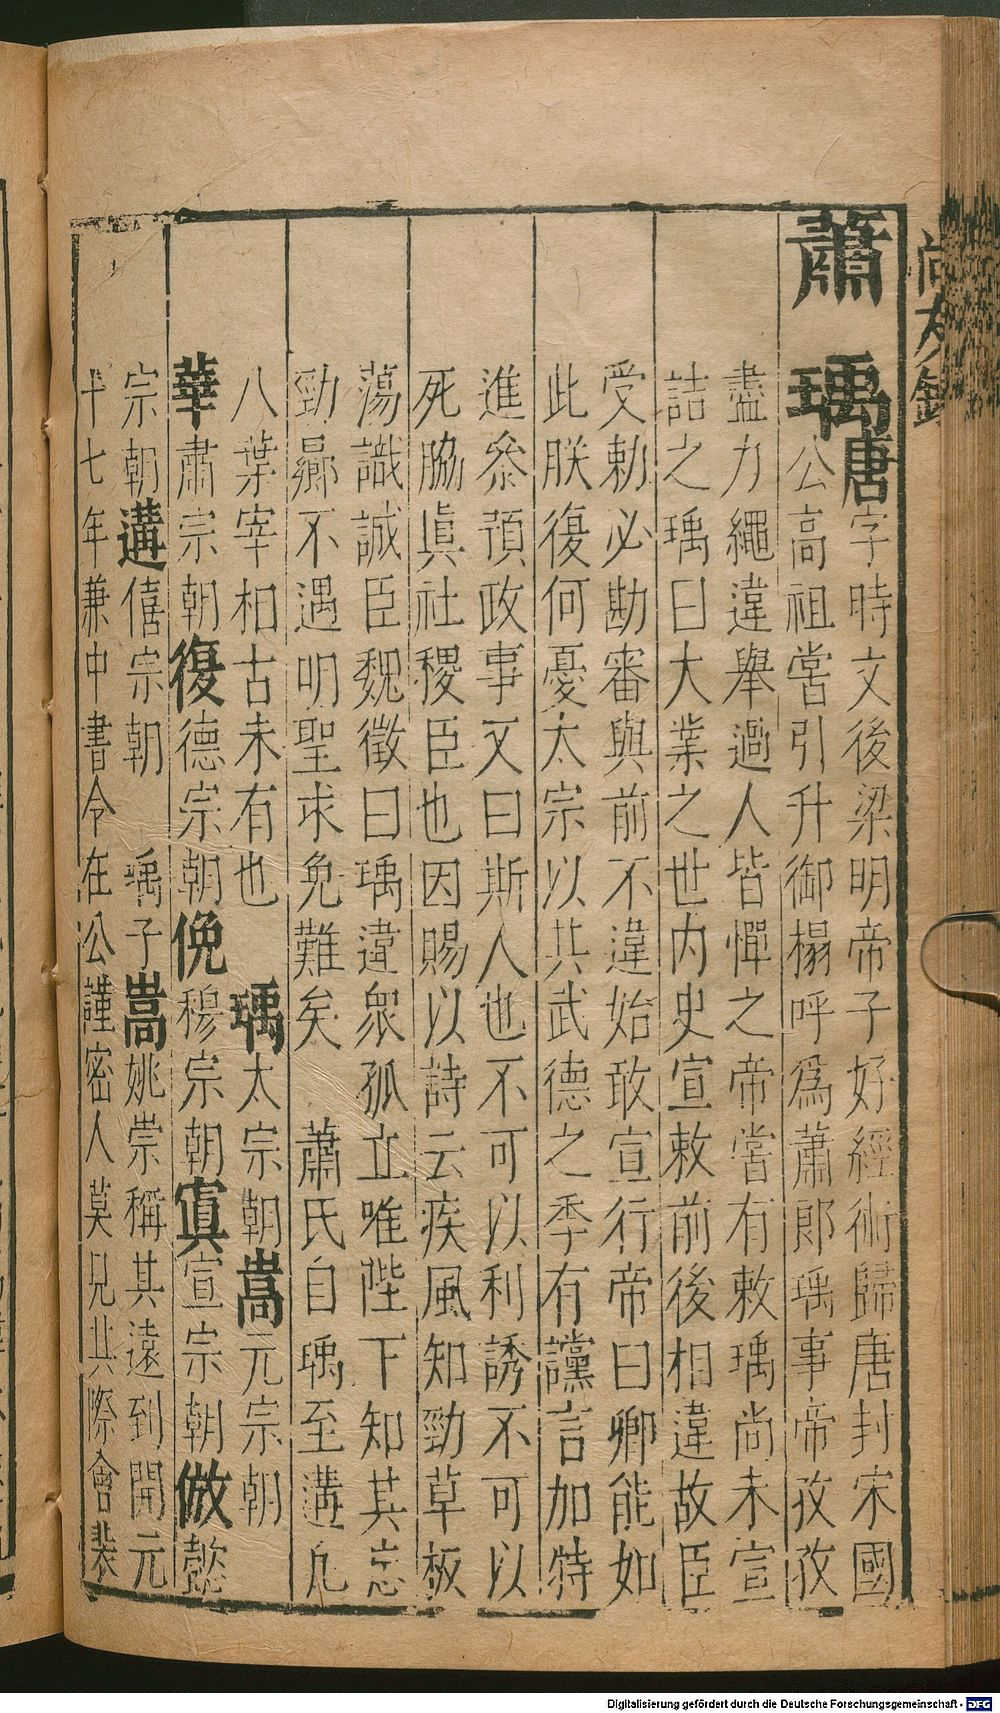 蕭瑀唐字時文後梁明帝子好經術歸唐封宋國
公高祖嘗引升御榻呼爲蕭郎瑀事帝孜孜
盡力繩違舉過人皆憚之帝嘗有敕瑀尚未宣
詰之瑀曰大業之世内史宣敕前後相違故臣
受勅必勘審與前不違始敢宣行帝曰卿能如
此朕復何憂太宗以共武德之季有讜言加特
進叅預政事又曰斯人也不可以利誘不可以
死脇眞社稷臣也因賜以詩云疾風知勁草板
蕩識誠臣魏徵曰瑀違衆孤立唯陛下知其忠
勁曏不遇明聖求免難矣 蕭氏自瑀至遘凢
八葉宰相古未有也 瑀太宗朝嵩元宗朝
華肅宗朝復德宗朝俛穆宗朝寘宣宗朝倣懿
宗朝遘僖宗朝 瑀子嵩姚崇稱其遠到開元
十七年兼中書令在公謹密人莫見其際會裴
尚友錄
Digitalisierung gefördert durch die Deutsche Forschungsgemeinschaft - DFG